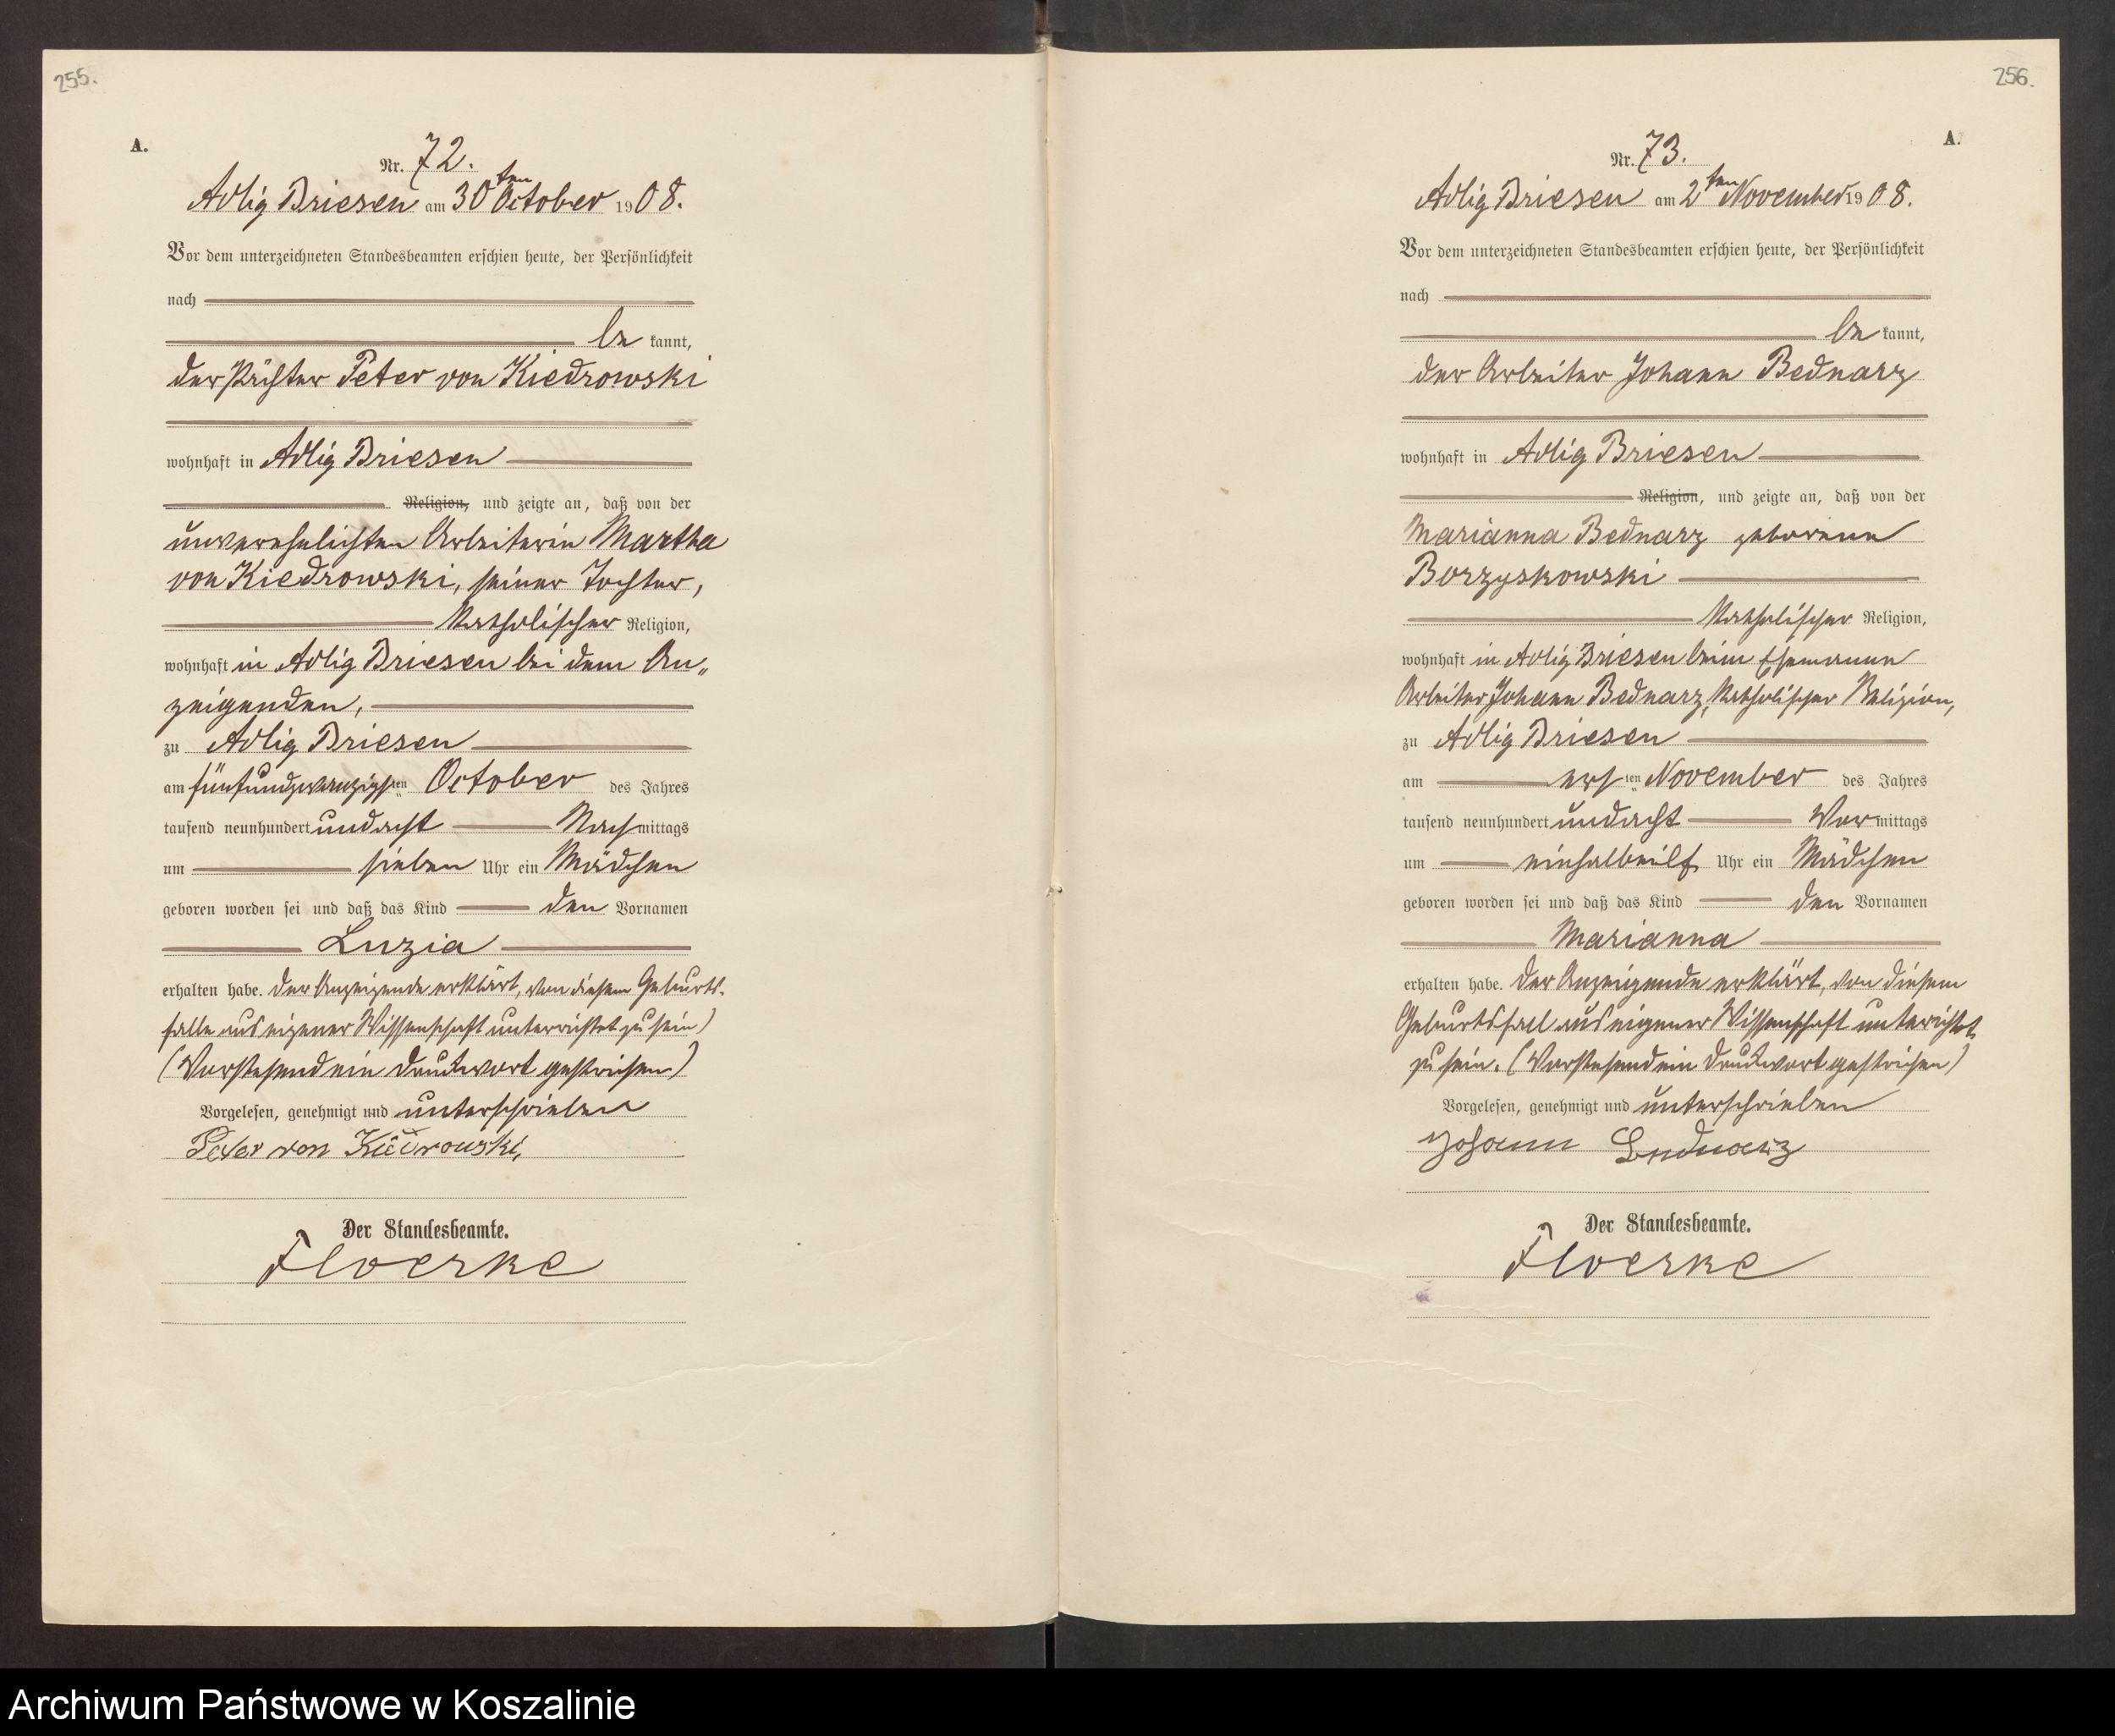 255.
A.
Nr. 72.
Adlig Briesen am 30ten October 1908.
Vor dem unterzeichneten Standesbeamten erschien heute, der Persönlichkeit
nach
be kannt,
der Pächter Peter von Kiedrowski
wohnhaft in Adlig Briesen
Religion, und zeigte an, daß von der
unverehelichten Arbeiterin Martha
von Kiedrowski, seiner Tochter,
katholischer Religion,
wohnhaft in Adlig Briesen bei dem An„
zeigenden,
zu Adlig Briesen
am fünfundzwanzigsten October des Jahres
tausend neunhundert undacht Nachmittags
um sieben Uhr ein Mädchen
geboren worden sei und daß das Kind den Vornamen
Luzia
erhalten habe. Der Anzeigende erklärt, von diesem Geburts-
falle aus eigener Wissenschaft unterrichtet zu sein)
(Vorstehend ein Druckwort gestrichen)
Vorgelesen, genehmigt und unterschrieben
Peter von Kiedrowski,
Der Standesbeamte.
Floerke
256.
A.
Nr. 73.
Adlig Briesen am 2ten November 1908.
Vor dem unterzeichneten Standesbeamten erschien heute, der Persönlichkeit
nach
be kannt,
der Arbeiter Johann Bednarz
wohnhaft in Adlig Briesen
Religion, und zeigte an, daß von der
Marianna Bednarz geborene
Borzyskowski
katholischer Religion,
wohnhaft in Adlig Briesen beim Ehemanne
Arbeiter Johann Bednarz, katholischer Religion,
zu Adlig Briesen
am ersten November des Jahres
tausend neunhundert undacht Vormittags
um einhalbeilf Uhr ein Mädchen
geboren worden sei und daß das Kind den Vornamen
Marianna
erhalten habe. Der Anzeigende erklärt, von diesem
Geburtsfall aus eigener Wissenschaft unterichtet
zu sein. (Vorstehend ein Druckwort gestrichen)
Vorgelesen, genehmigt und unterschrieben
Johann Bednarz
Der Standesbeamte.
Floerke
Archiwum Państwowe w Koszalinie